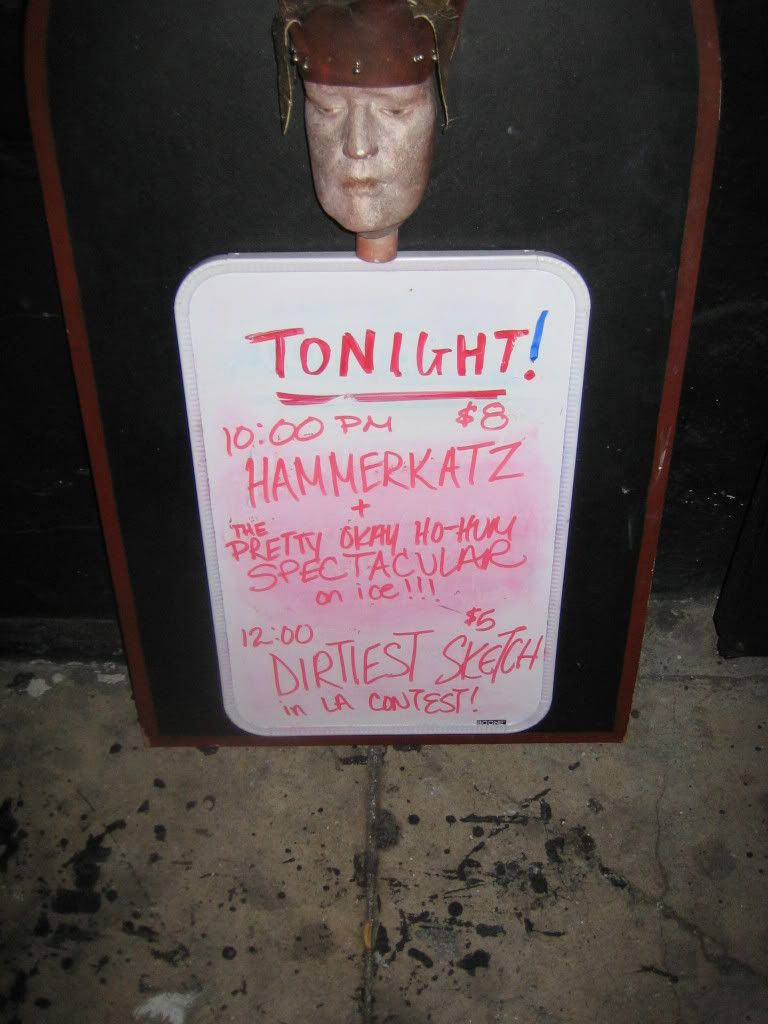 TONIGHT!
10:00 PM $8
HAMMERKATZ
+
THE
PRETTY OKAY HO-HUM
SPECTACULAR
on ice!!!
12:00 $5
DIRTIEST SKETCH
in LA CONTEST!
BOONE